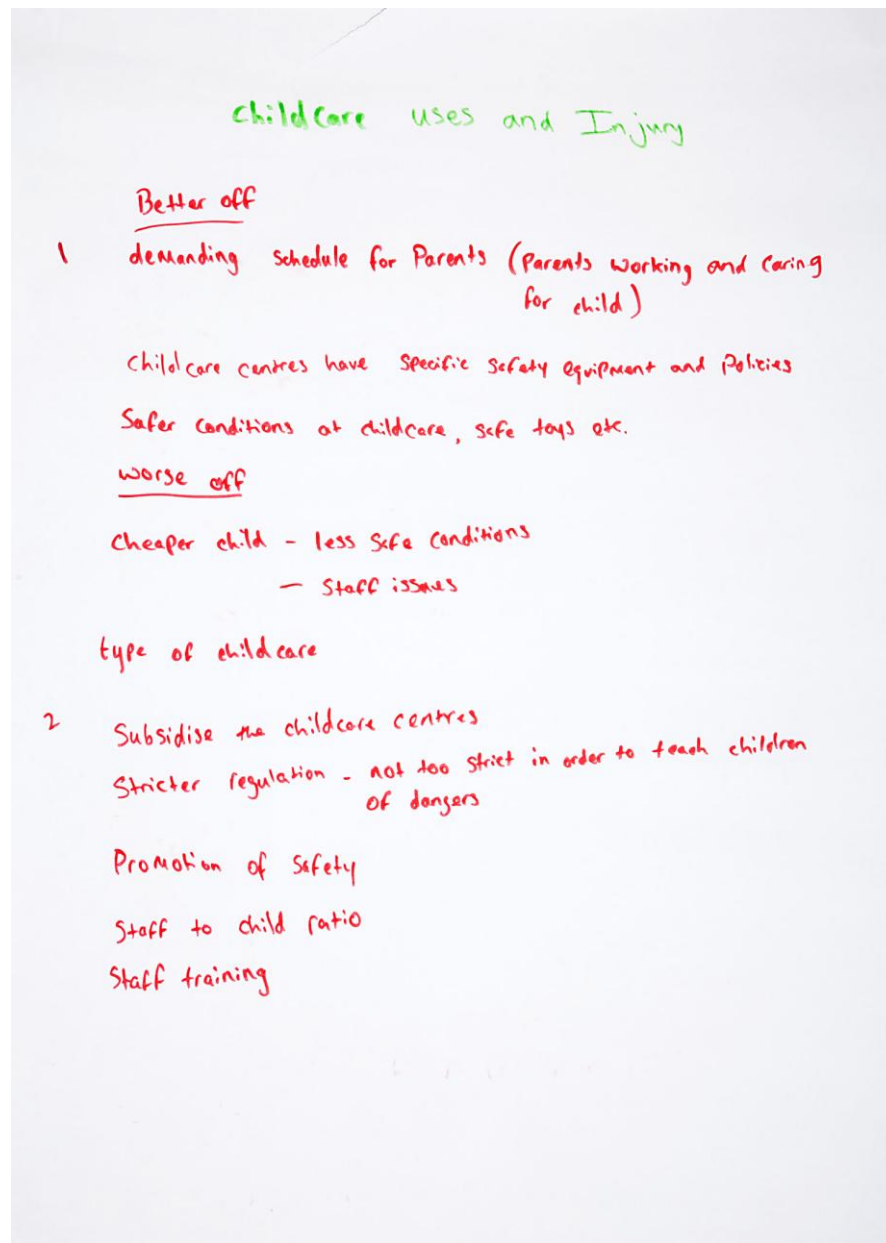 Childcare uses and Injury
Better off
1 demanding schedule for Parents (Parents working and caring
for child)
Childcare centres have specific safety equipment and Policies
Safer conditions at childcare, safe toys etc.
worse off
Cheaper child - less safe conditions
- Staff issues
type of childcare
2 Subsidise the childcare centres
Stricter regulation - not too strict in order to teach children
of dangers
Promotion of safety
Staff to child ratio
Staff training